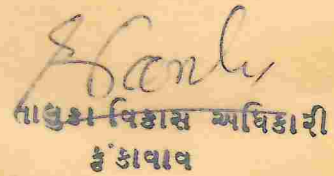 તાલુકા વિકાસ અધિકારી
કુંકાવાવ